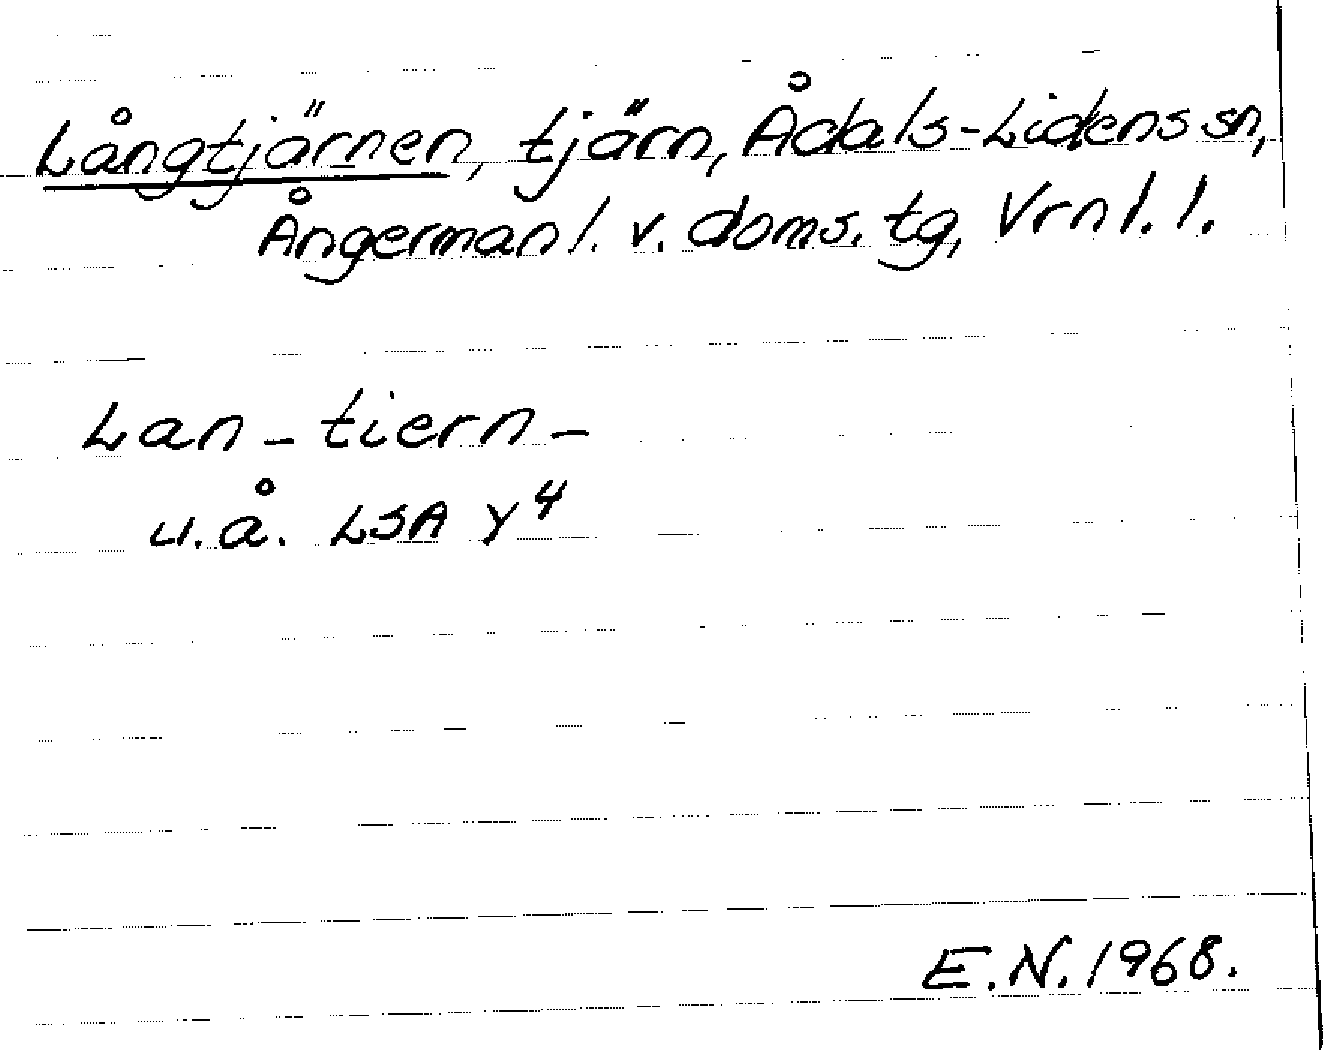 Långtjärnen, tjärn, Ådals-Lidens sn,
Ångermanl. v. doms. tg, Vrnl. l.
Lan-tiern-
u.å. LSA Y⁴
E.N. 1968.